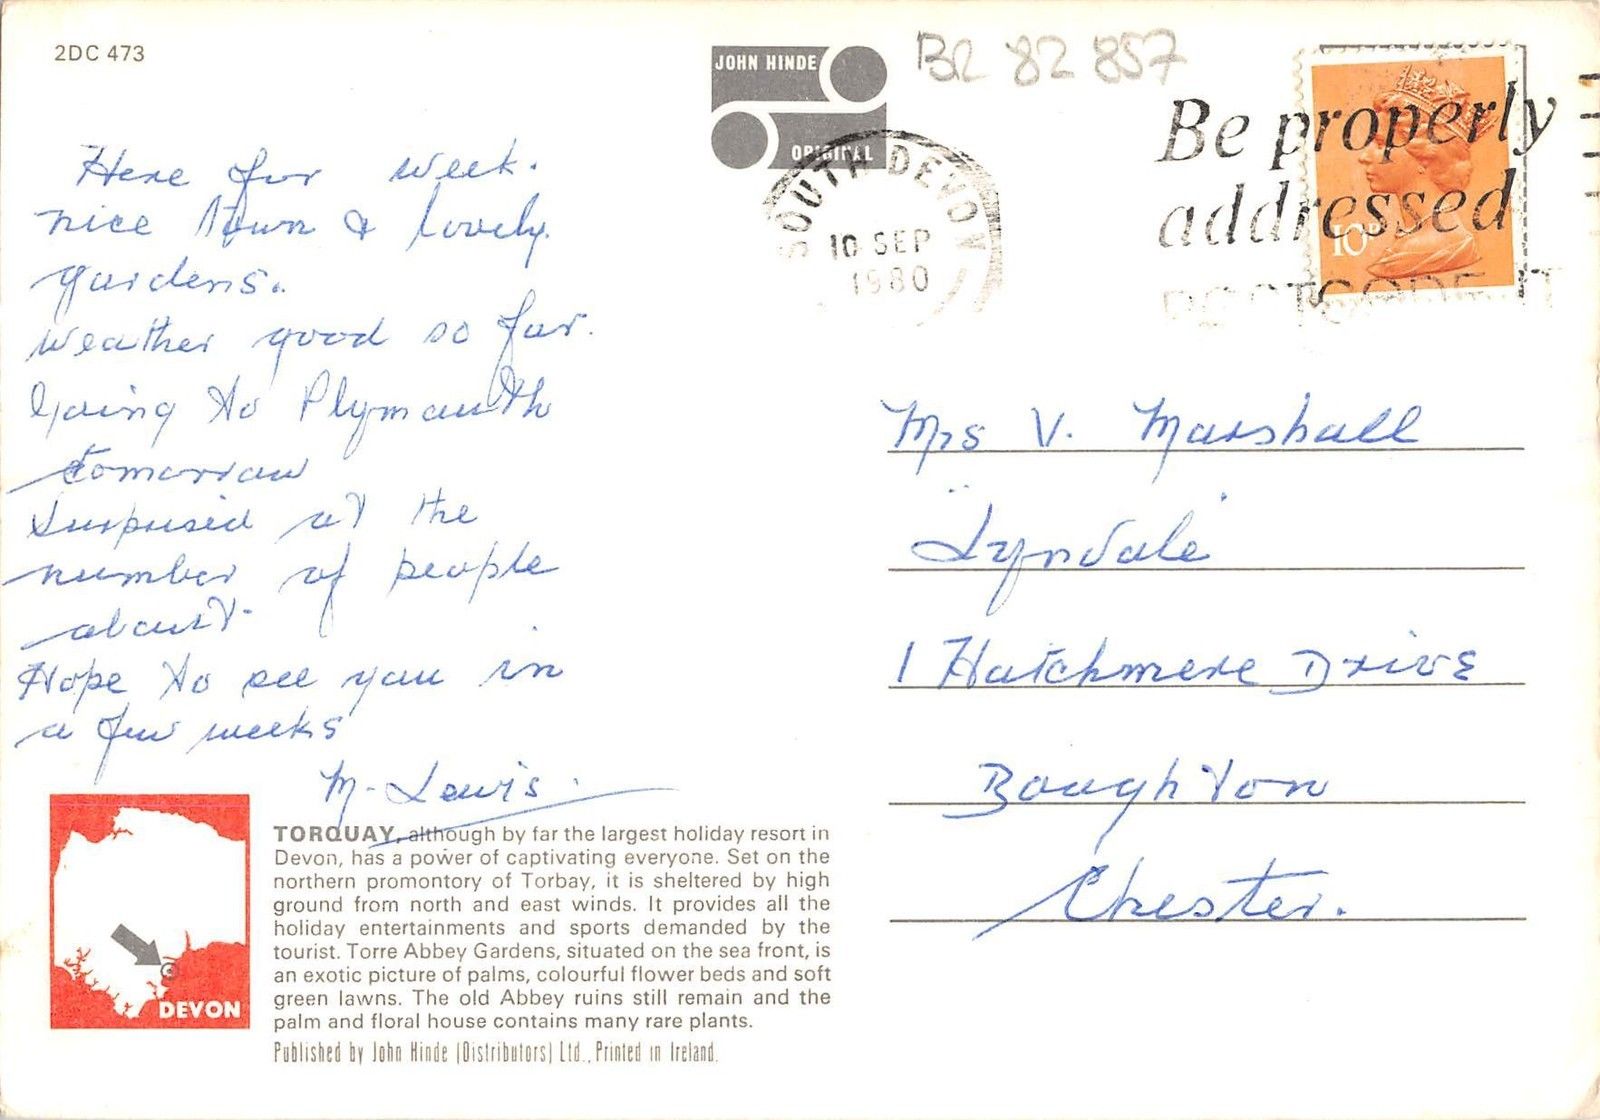 2DC 473
JOHN HINDE
ORIGINAL
BR 82 857
SOUTH DEVON
10 SEP
1980
Be properly
addressed
POSTCODE IT
10P
Here for week.
nice town & lovely
gardens.
Weather good so far.
Going to Plymouth
tomorrow
Surprised at the
number of people
about.
Hope to see you in
a few weeks
M. Lewis.
Mrs V. Marshall
"Lyndale"
1 Hatchmere Drive
Boughton
Chester.
DEVON
TORQUAY, although by far the largest holiday resort in
Devon, has a power of captivating everyone. Set on the
northern promontory of Torbay, it is sheltered by high
ground from north and east winds. It provides all the
holiday entertainments and sports demanded by the
tourist. Torre Abbey Gardens, situated on the sea front, is
an exotic picture of palms, colourful flower beds and soft
green lawns. The old Abbey ruins still remain and the
palm and floral house contains many rare plants.
Published by John Hinde (Distributors) Ltd., Printed in Ireland.